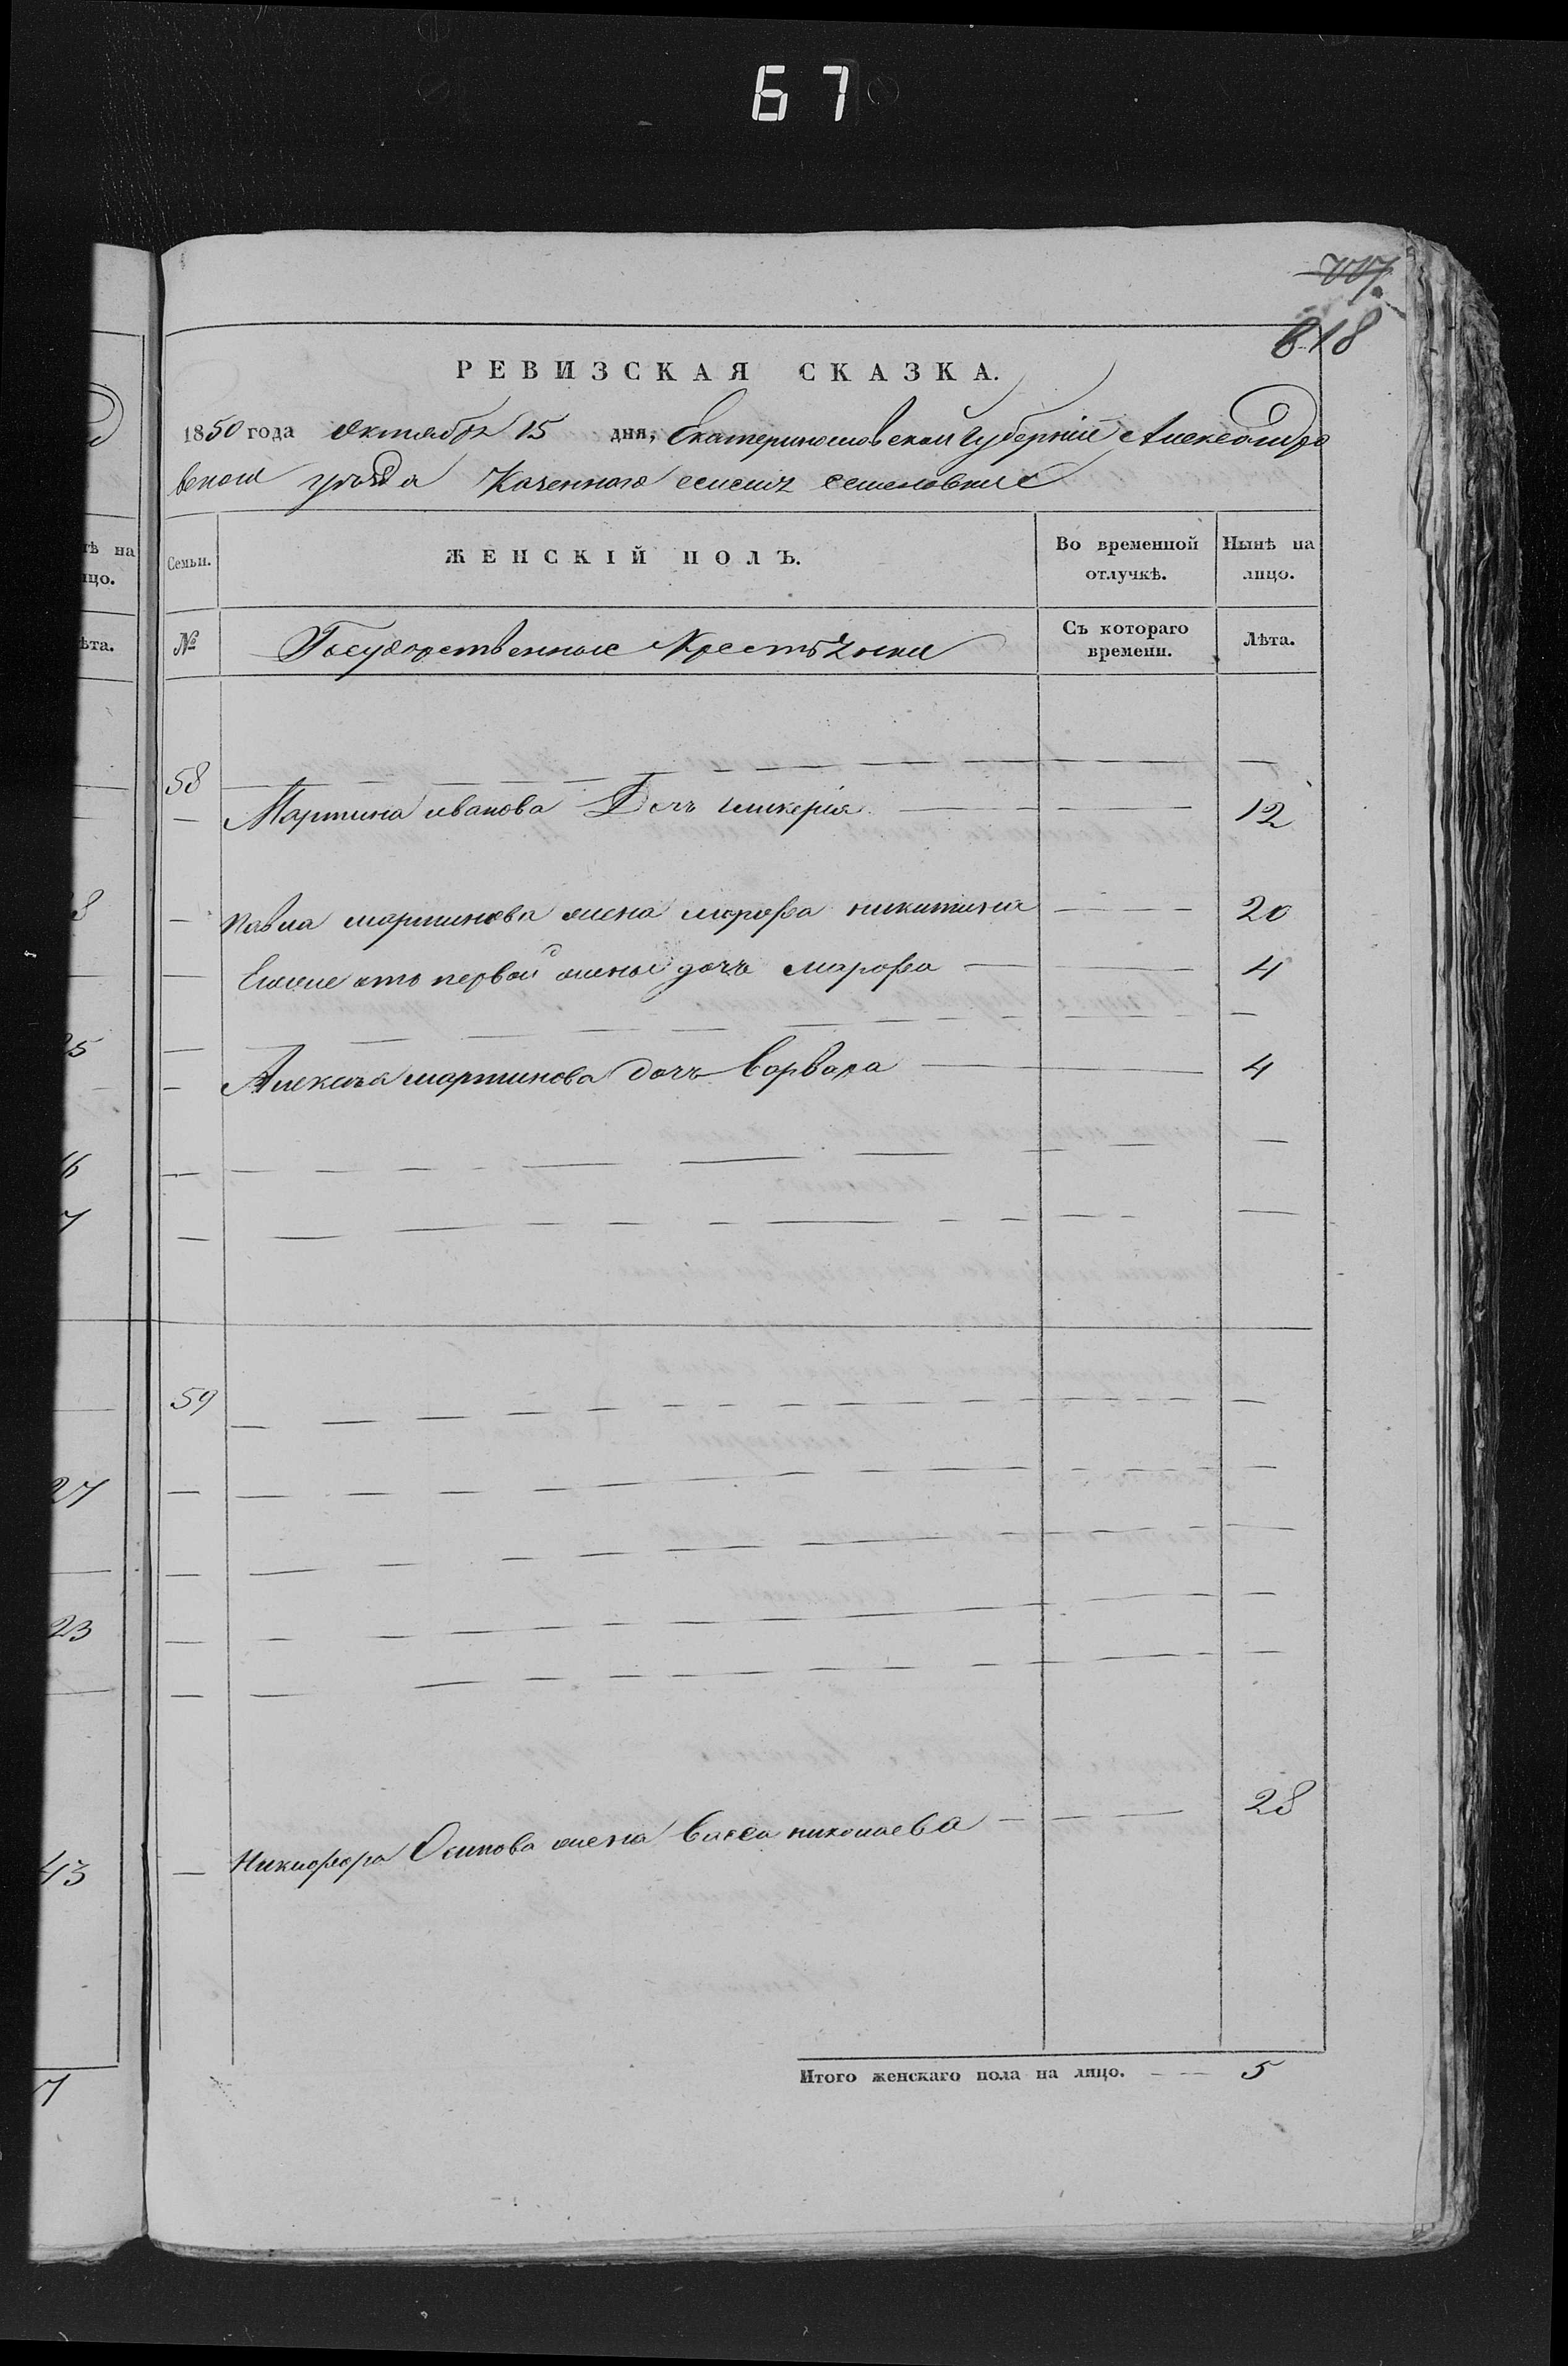 67
818
РЕВИЗСКАЯ СКАЗКА.
1850 года Октября 15 дня, Екатеринославской губерніи Александро
вскаго уѣзда Казеннаго селенія
Семьи.
ЖЕНСКІЙ ПОЛЪ.
Во временной отлучкѣ.
Нынѣ на лицо.
№
Государственные Крестьянки
Съ котораго времени.
Лѣта.
58
Мартина иванова Дочь гликерія 12
Павла мартинова жена марфа никитина 20
Егоже отъ первой жены дочь марфа 4
Алексѣя мартинова дочь варвара 4
59
Никифора Осипова жена васса николаева 28
Итого женскаго пола на лицо. 5
тѣ на
ицо.
ѣта.
8
25
16
7
27
23
43
7